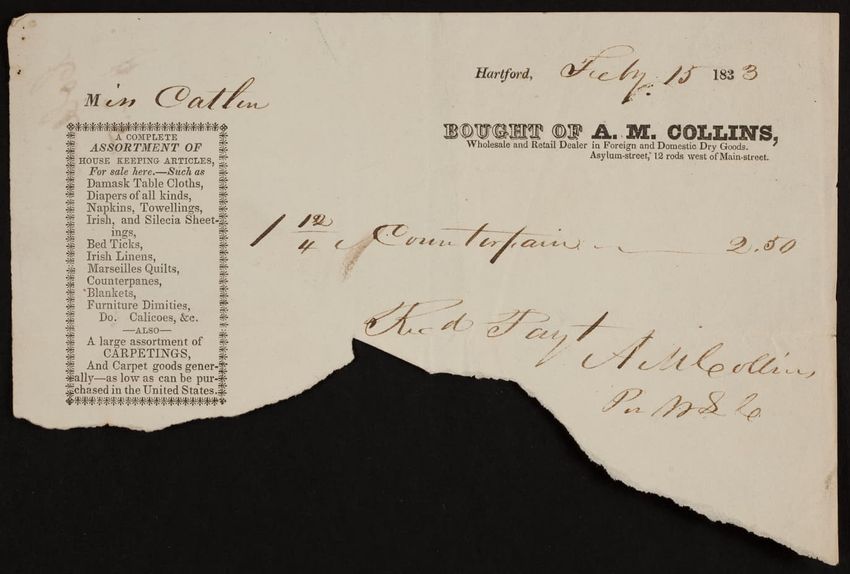 Hartford, Feby. 15 1833
Miss Catlin
BOUGHT OF A. M. COLLINS,
Wholesale and Retail Dealer in Foreign and Domestic Dry Goods.
Asylum-street, 12 rods west of Main-street.
A COMPLETE
ASSORTMENT OF
HOUSE KEEPING ARTICLES,
For sale here.—Such as
Damask Table Cloths,
Diapers of all kinds,
Napkins, Towellings,
Irish, and Silecia Sheet-
ings,
Bed Ticks,
Irish Linens,
Marseilles Quilts,
Counterpanes,
Blankets,
Furniture Dimities,
Do. Calicoes, &c.
—ALSO—
A large assortment of
CARPETINGS,
And Carpet goods gener-
ally—as low as can be pur-
chased in the United States.
1 12/4 Counterpain 2.50
Recd Payt
A M Collins
Per